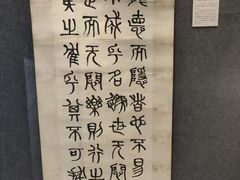 龍德而隱者也不易
不成乎名遯世无悶
是而无悶樂則行之
違之確乎其不可拔